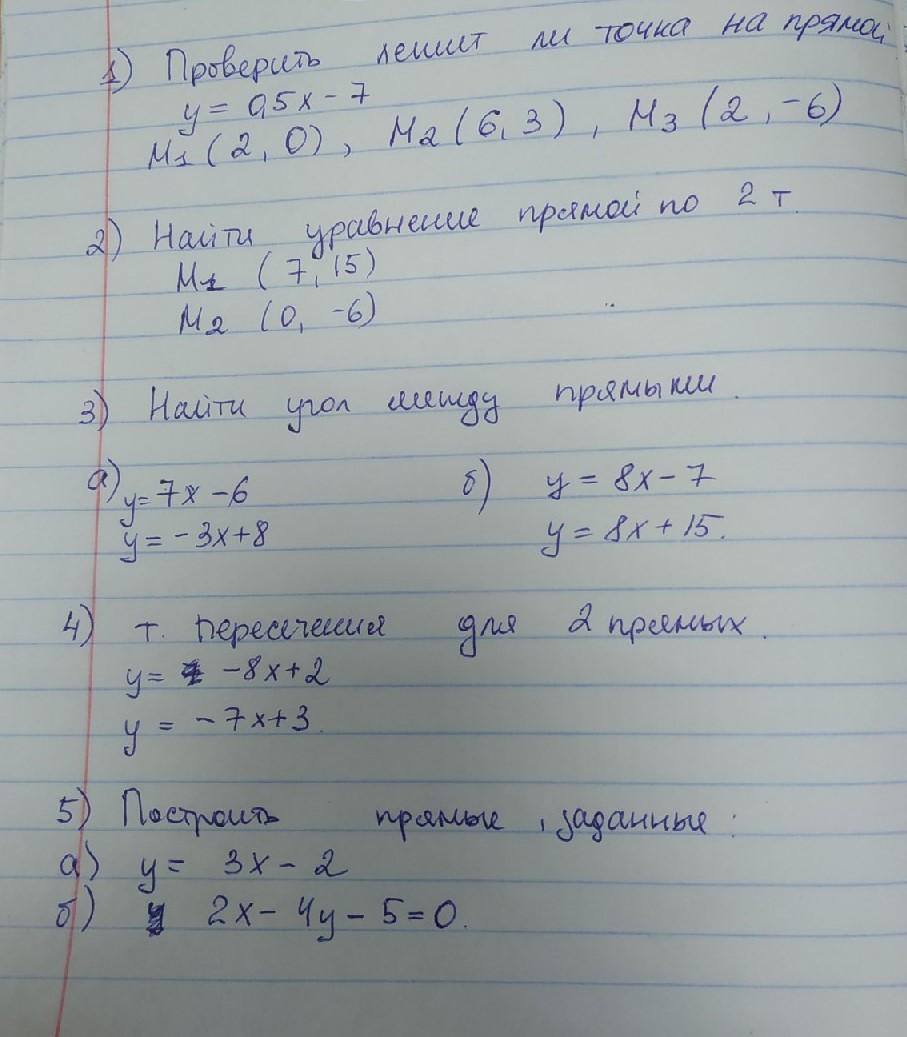 1) Проверить лежит ли точка на прямой
y = 0,5x - 7
M1 (2, 0), M2 (6, 3), M3 (2, -6)
2) Найти уравнение прямой по 2 т.
M1 (7, 15)
M2 (0, -6)
3) Найти угол между прямыми.
а) y = 7x - 6 б) y = 8x - 7
y = -3x + 8 y = 8x + 15.
4) т. пересечения для 2 прямых.
y = -8x + 2
y = -7x + 3.
5) Построить прямые, заданные:
а) y = 3x - 2
б) 2x - 4y - 5 = 0.